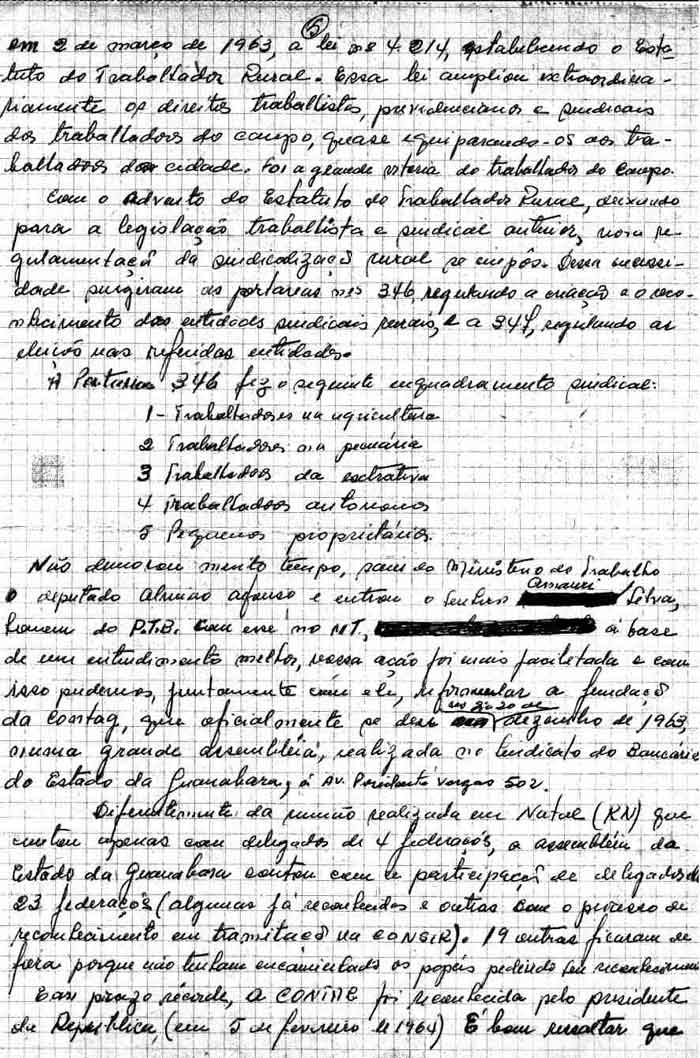 5
em 2 de março de 1963, a lei nº 4 214, estabelecendo o Esta-
tuto do Trabalhador Rural. Essa lei ampliou extraordina-
riamente os direitos trabalhistas, previdenciários e sindicais
dos trabalhadores do campo, quase equiparando-os aos tra-
balhadores da cidade. Foi a grande vitória do trabalhador do Campo.
Com o advento do Estatuto do Trabalhador Rural, deixando
para a legislação trabalhista e sindical anterior, nova re-
gulamentação da sindicalização rural se impôs. Dessa necessi-
dade surgiram as portarias nºs 346, regulando a criação e o reco-
nhecimento das entidades sindicais rurais, e a 347, regulando as
eleições nas referidas entidades.
A Portaria 346 fez o seguinte enquadramento sindical:
1 - Trabalhadores na agricultura
2 Trabalhadores na pecuária
3 Trabalhadores da extrativa
4 Trabalhadores autonomos
5 Pequenos proprietários.
Não demorou muito tempo, saiu do Ministério do Trabalho
o deputado Almino Afonso e entrou o Senhor Amauri Silva,
homem do P.T.B. Com esse no MT, à base
de um entendimento melhor, nossa ação foi mais facilitada e com
isso pudemos, juntamente com ele, reformular a fundação
da Contag, que oficialmente se deu no dia 20 de dezembro de 1963,
numa grande assembléia, realizada no Sindicato do Bancário
do Estado da Guanabara, à Av. Presidente Vargas 502.
Diferentemente da reunião realizada em Natal (RN) que
contou apenas com delegados de 4 federações, a assembléia da
Estado da Guanabara contou com a participação de delegados de
23 federações (algumas já reconhecidas e outras com o processo de
reconhecimento em tramitação na CONSIR). 19 outras ficaram de
fora porque não tinham encaminhado os papéis pedindo seu reconhecimento
Em prazo récorde, a CONTAG foi reconhecida pelo presidente
da República, (em 5 de fevereiro de 1964) É bom ressaltar que